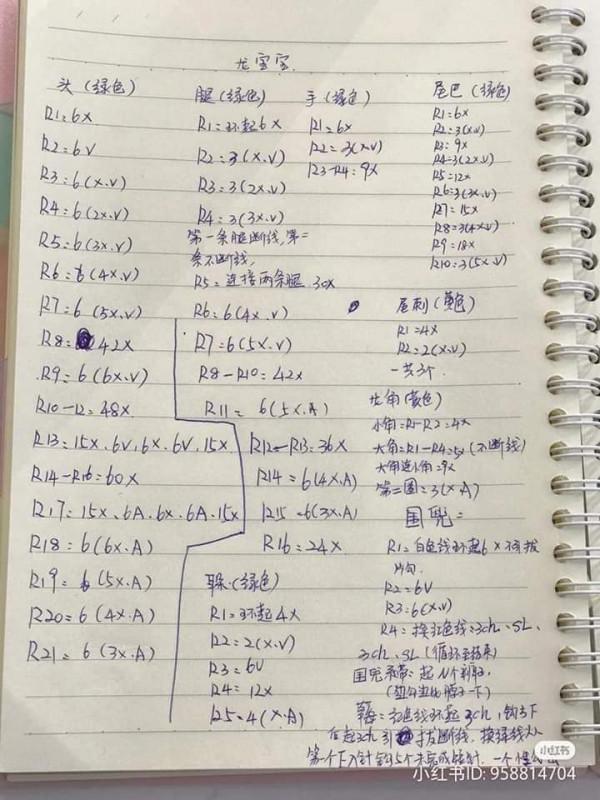 龙宝宝
头(绿色)
R1=6x
R2=6V
R3=6(x.v)
R4=6(2x.v)
R5=6(3x.v)
R6=6(4x.v)
R7=6(5x.v)
R8=42x
R9=6(6x.v)
R10-12=48x
R13=15x.6v,6x.6v.15x
R14-R16=60x
R17=15x.6A.6x.6A.15x
R18=6(6x.A)
R19=6(5x.A)
R20=6(4x.A)
R21=6(3x.A)
腿(绿色)
R1=环起6x
R2=3(x.v)
R3=3(2x.v)
R4=3(3x.v)
第一条腿断线,第二
条不断线,
R5=连接两条腿 30x
R6=6(4x.v)
R7=6(5x.v)
R8-R10=42x
R11=6(5x.A)
R12-R13=36x
R14=6(4x.A)
R15=6(3x.A)
R16=24x
手(绿色)
R1=6x
R2=3(x.v)
R3-R4=9x
耳朵(绿色)
R1=环起4x
R2=2(x.v)
R3=6V
R4=12x
R5=4(x.A)
尾巴(绿色)
R1=6x
R2=3(x.v)
R3=9x
R4=3(2x.v)
R5=12x
R6=3(3x.v)
R7=15x
R8=3(4x.v)
R9=18x
R10=3(5x.v)
尾刺(黄色)
R1=4x
R2=2(x.v)
一共3个.
龙角(黄色)
小角=R1-R2=4x
大角=R1-R4=5x(不断线)
大角连小角=9x
第二圈=3(x.A)
围兜=
R1=白色线环起6x不用拔
R2=6V
R3=6(x.v)
R4=换红色线=3ch.SL.
3ch.SL(循环至结束)
围兜系带:起N个辫子
红色线环起3ch,钩3下
在起3ch引拔断线.换绿线
小红书
小红书ID: 958814704